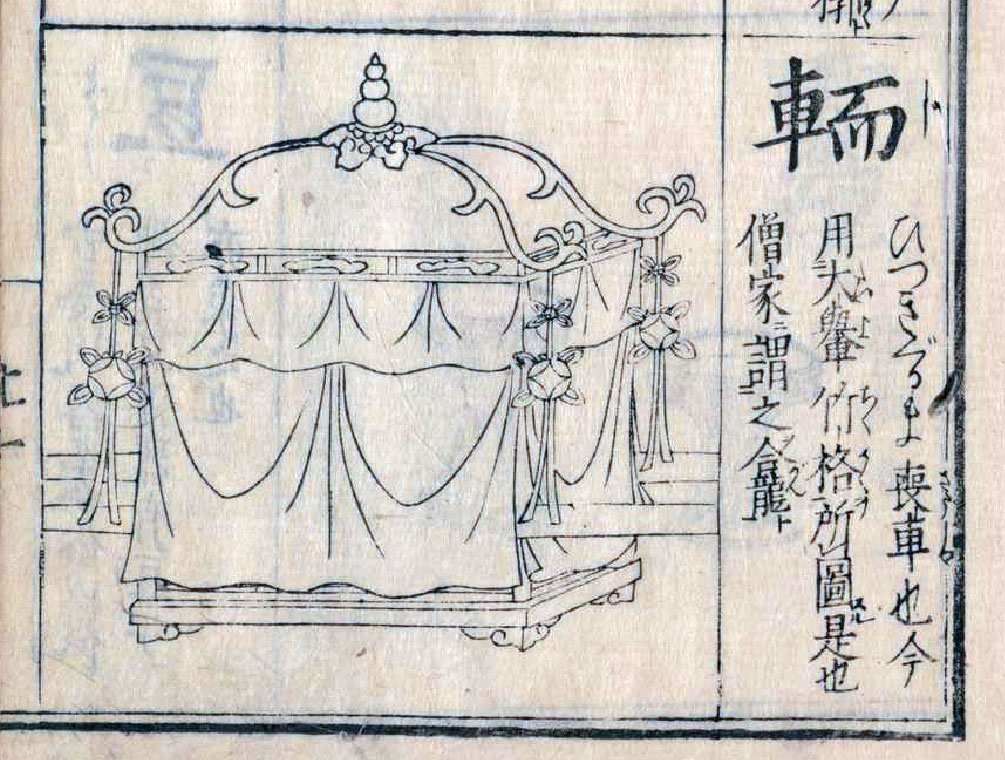 輀
ひつきぐるま喪車也今
用大轝竹格所圖是也
僧家ニ謂之龕ト